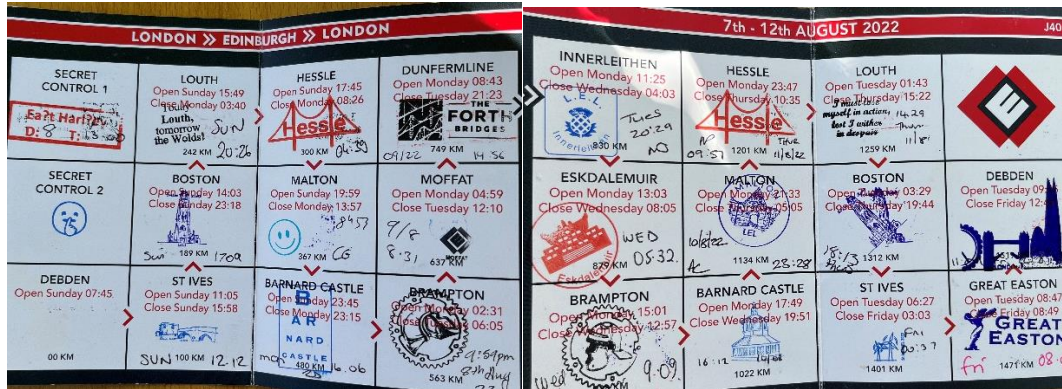 LONDON >> EDINBURGH >> LONDON
SECRET
CONTROL 1
LOUTH
Open Sunday 15:49
Close Monday 03:40
Louth,
tomorrow
the Wolds!
SUN
242 KM 20:26
HESSLE
Open Sunday 17:45
Close Monday 08:26
Hessle
300 KM
DUNFERMLINE
Open Monday 08:43
Close Tuesday 21:23
THE
FORTH
BRIDGES
749 KM
09/22 14:56
SECRET
CONTROL 2
BOSTON
Open Sunday 14:03
Close Sunday 23:18
189 KM
Sun 1709
MALTON
Open Sunday 19:59
Close Monday 13:57
367 KM
CG
MOFFAT
Open Monday 04:59
Close Tuesday 12:10
9/8
8.31
MOFFAT
637 KM
DEBDEN
Open Sunday 07:45
00 KM
ST IVES
Open Sunday 11:05
Close Sunday 15:58
SUN 100 KM 12.12
BARNARD CASTLE
Open Sunday 23:45
Close Monday 23:15
B
AR
NARD
CASTLE
480 KM
16.06
BRAMPTON
Open Monday 02:31
Close Tuesday 06:05
9:59pm
8th Aug
563 KM
7th - 12th AUGUST 2022
INNERLEITHEN
Open Monday 11:25
Close Wednesday 04:03
L.E.L
Innerleithen
830 KM
Tues
20:29
HESSLE
Open Monday 23:47
Close Thursday 10:35
Hessle
09:57
1201 KM
THUR
11/8/22
LOUTH
Open Tuesday 01:43
Close Thursday 15:22
I must lose
myself in action,
lest I wither
in despair
14.29
Thur
11/8
1259 KM
ESKDALEMUIR
Open Monday 13:03
Close Wednesday 08:05
WED
05:32.
Eskdalemuir
MALTON
Open Monday 21:33
Close Thursday 05:05
MALTON
LEL
10/8/22
1134 KM
23:28
BOSTON
Open Tuesday 03:29
Close Thursday 19:44
18:13
1312 KM
DEBDEN
Close Friday
BRAMPTON
Open Monday 15:01
Close Wednesday 12:57
Wed
9.09.
BARNARD CASTLE
Open Monday 17:49
Close Wednesday 19:51
16:12
1022 KM
ST IVES
Open Tuesday 06:27
Close Friday 03:03
FRI
00:37
1401 KM
GREAT EASTON
Close Friday 08:49
GREAT
EASTON
fri
1471 KM